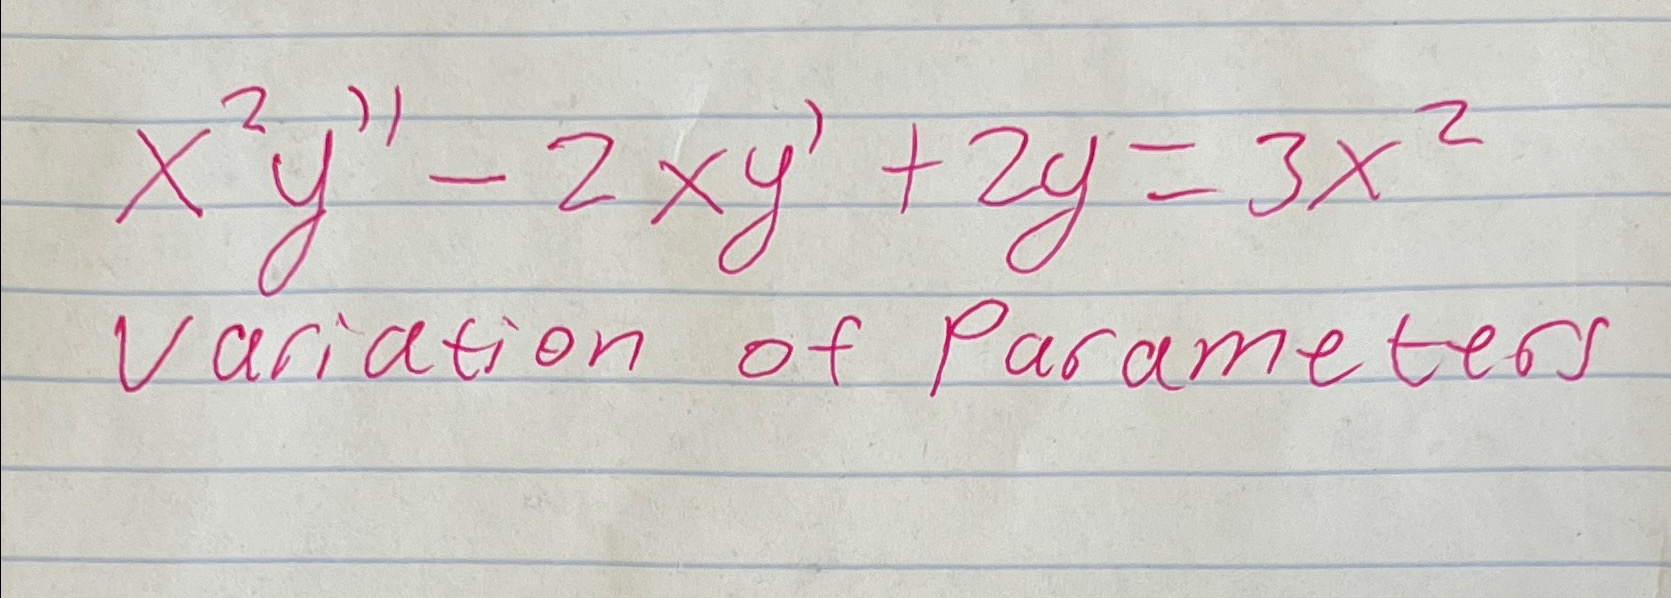 x²y'' - 2xy' + 2y = 3x²
Variation of Parameters